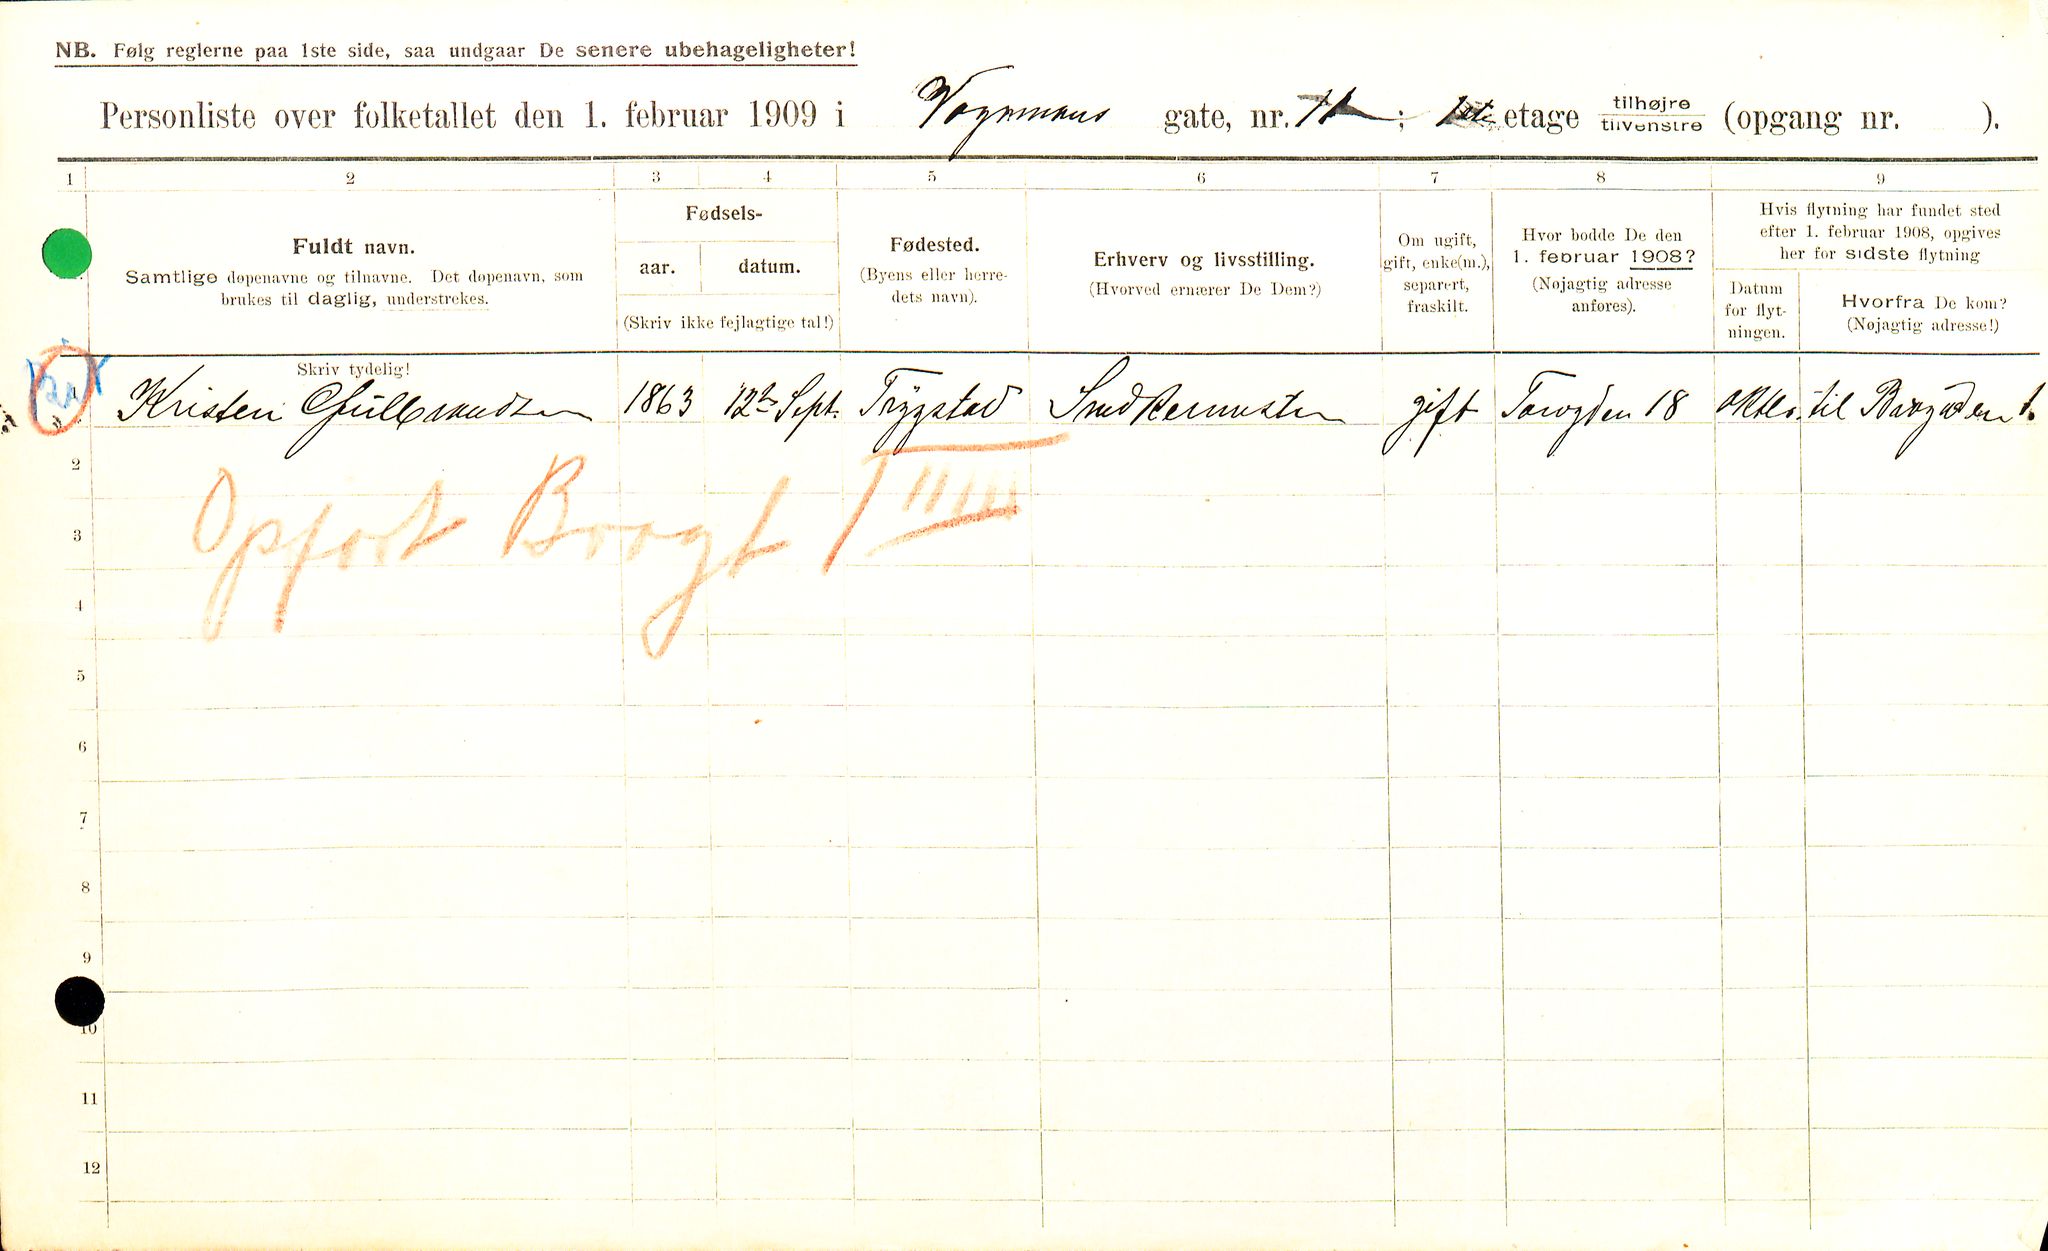 NB. Følg reglerne paa 1ste side, saa undgaar De senere ubehageligheter!
Personliste over folketallet den 1. februar 1909 i Vognmans gate, nr. 11 ; 1ste etage tilhøjre tilvenstre (opgang nr. ).
1 2 3 4 5 6 7 8 9
Fuldt navn.
Samtlige døpenavne og tilnavne. Det døpenavn, som
brukes til daglig, understrekes.
Skriv tydelig!
Fødsels-
aar. datum.
(Skriv ikke fejlagtige tal!)
Fødested.
(Byens eller herre-
dets navn).
Erhverv og livsstilling.
(Hvorved ernærer De Dem?)
Om ugift,
gift, enke(m.),
separert,
fraskilt.
Hvor bodde De den
1. februar 1908?
(Nøjagtig adresse
anføres).
Hvis flytning har fundet sted
efter 1. februar 1908, opgives
her for sidste flytning
Datum
for flyt-
ningen.
Hvorfra De kom?
(Nøjagtig adresse!)
1 Kristen Gulbrandsen 1863 12te Sept. Trygstad Snedkermester gift Torvgden 18 oktbr. til Brogaden 1.
2
Opført Brogt 1 III
3
4
5
6
7
8
9
10
11
12